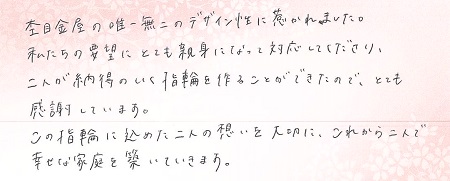 杢目金屋の唯一無二のデザイン性に惹かれました。
私たちの要望にとても親身になって対応してくださり、
二人が納得のいく指輪を作ることができたので、とても
感謝しています。
この指輪に込めた二人の想いを大切に、これから二人で
幸せな家庭を築いていきます。